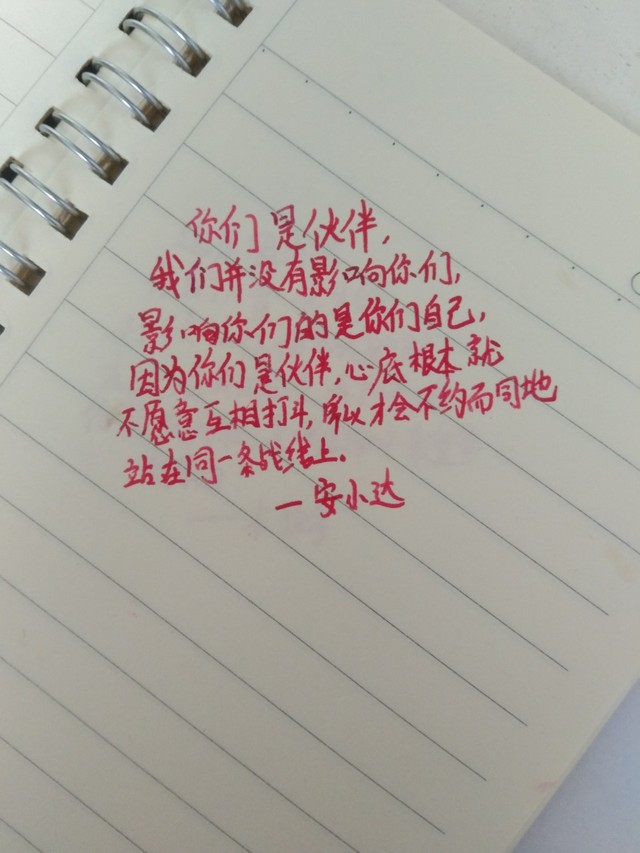 你们是伙伴,
我们并没有影响你们,
影响你们的是你们自己,
因为你们是伙伴,心底根本就
不愿意互相打斗,所以才会不约而同地
站在同一条战线上.
—安小达